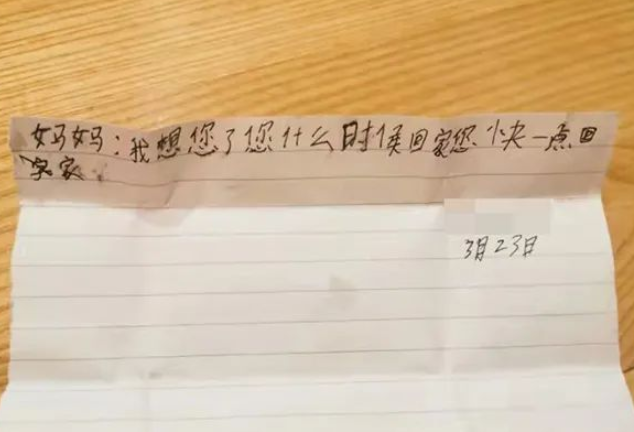 妈妈:我想您了您什么时候回家您快一点回
家
3月23日